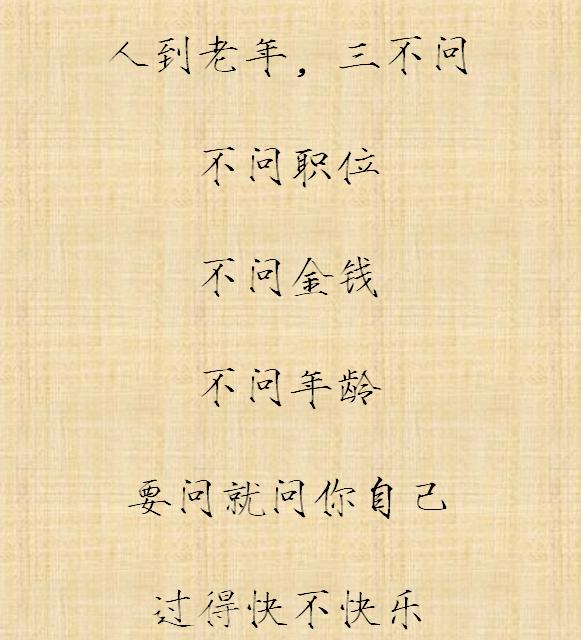 人到老年，三不问
不问职位
不问金钱
不问年龄
要问就问你自己
过得快不快乐